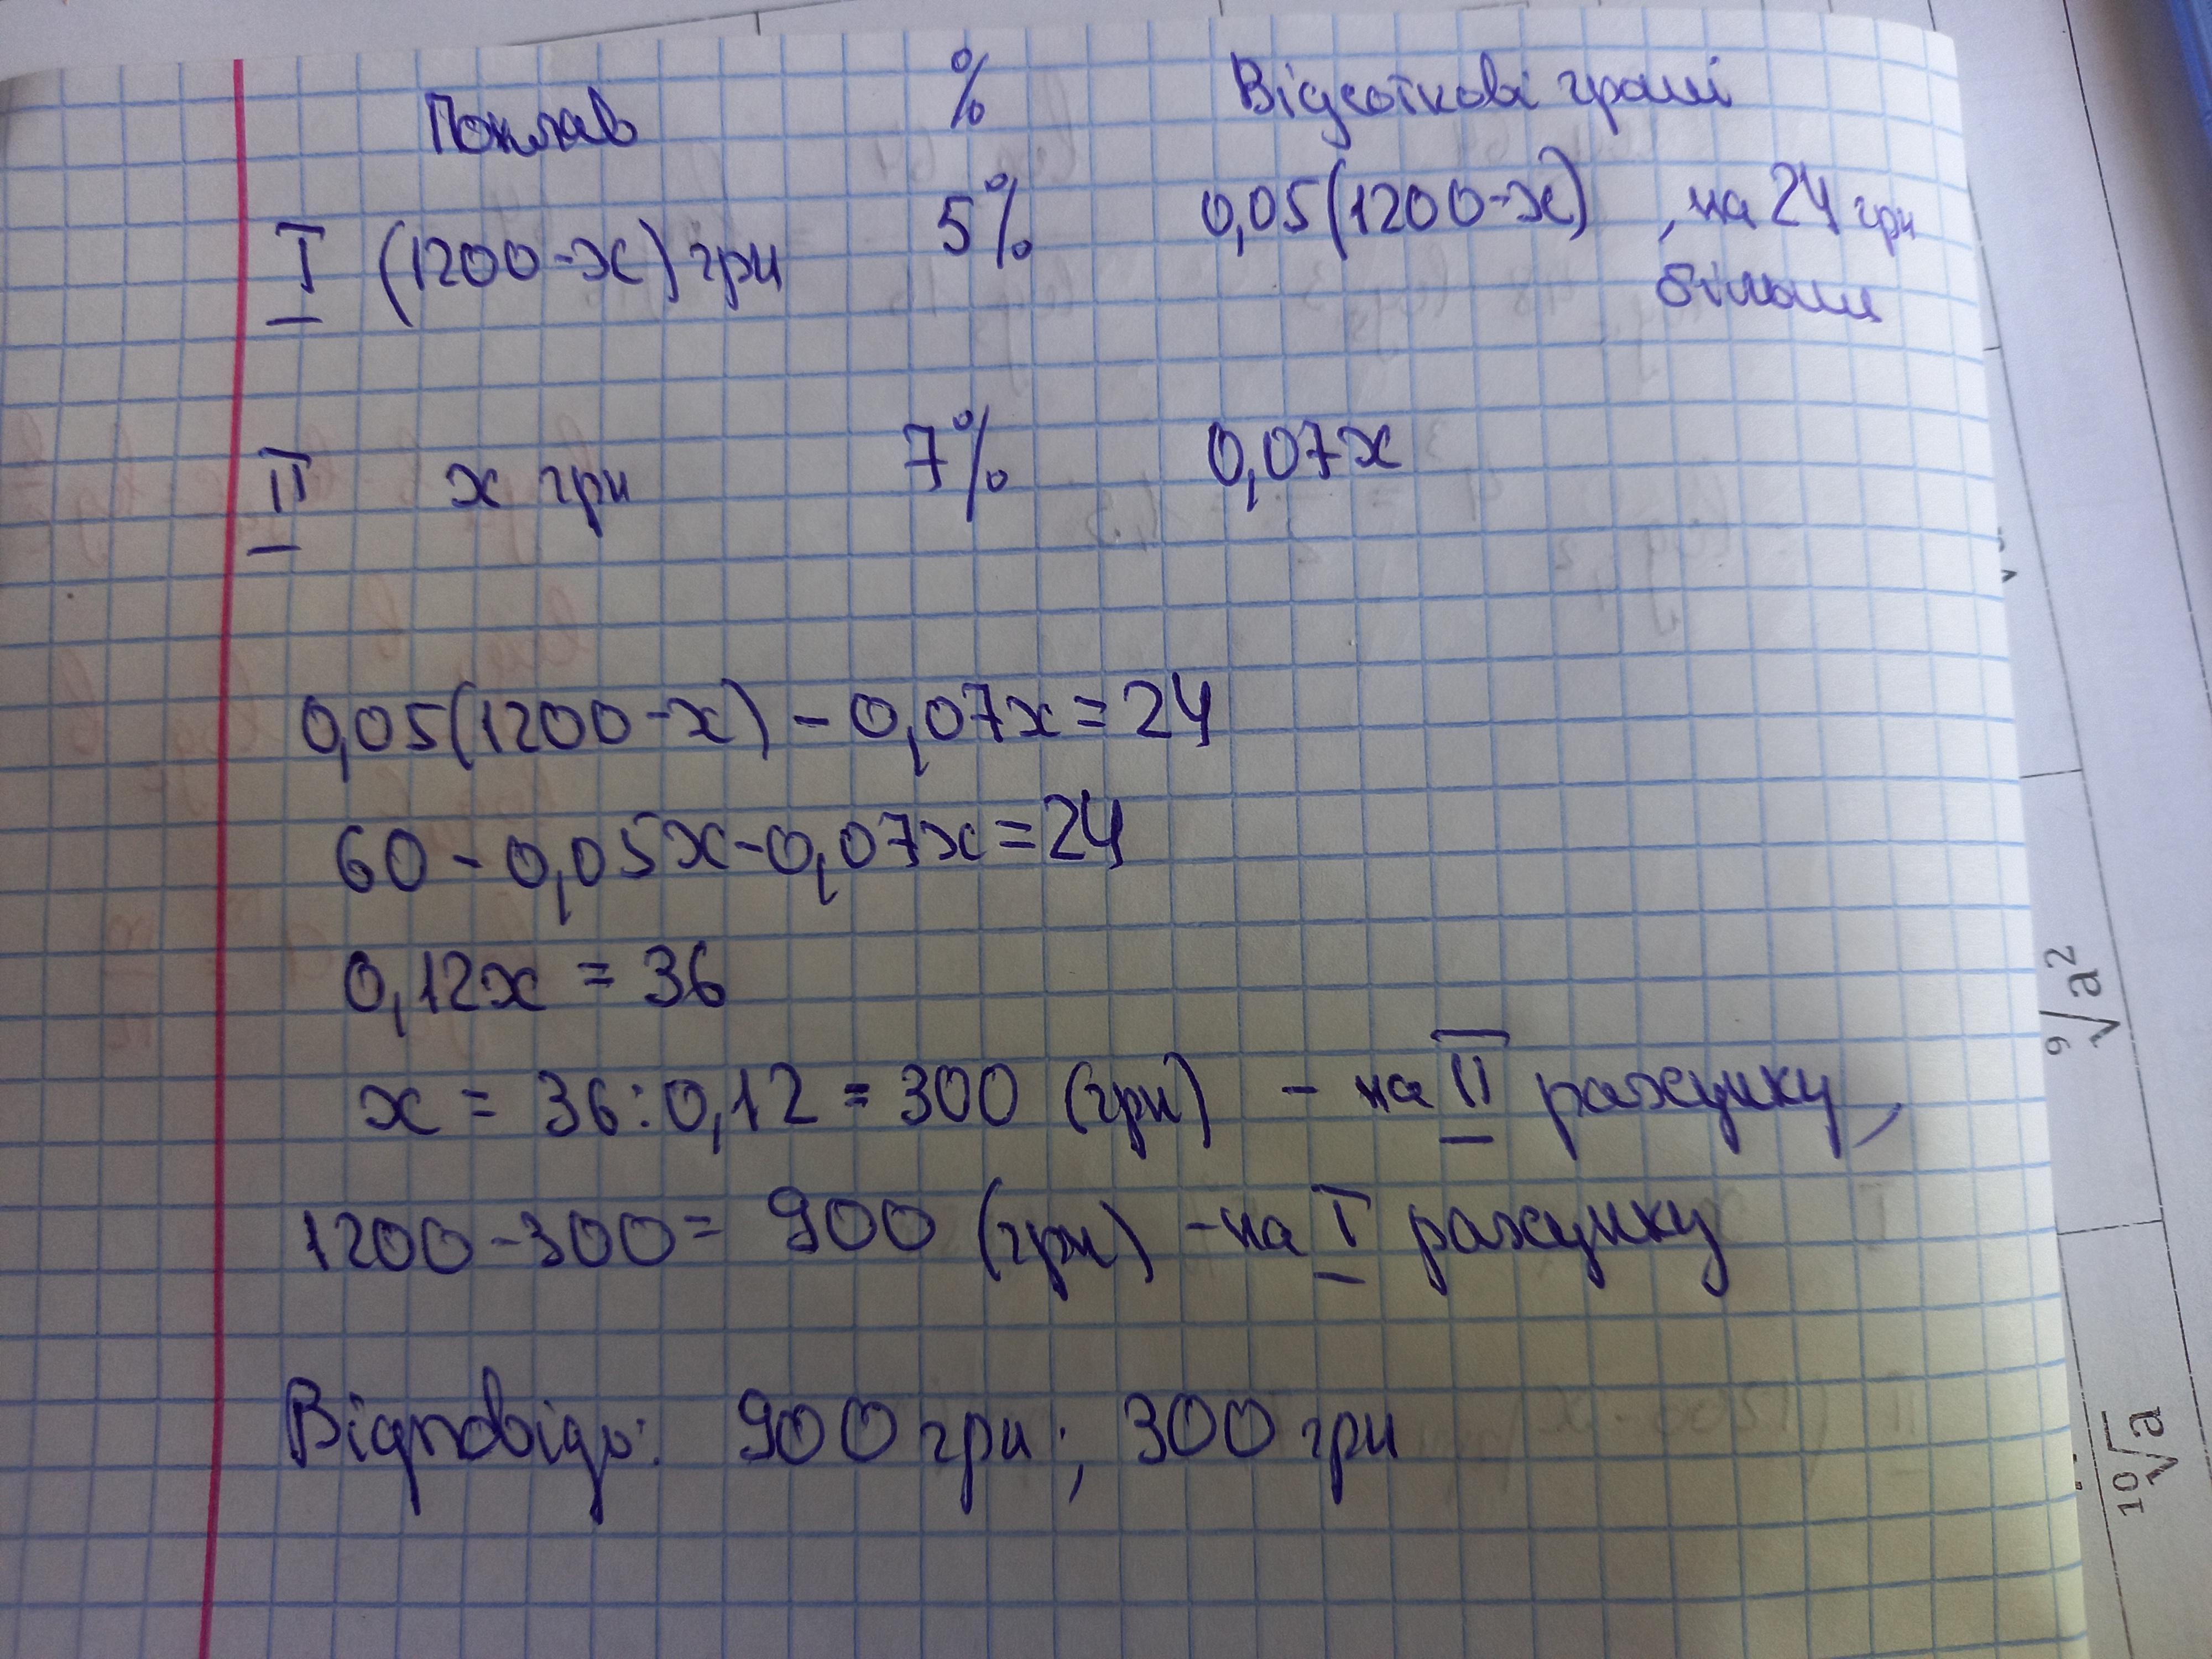 Поклав % Відсоткові гроші
I (1200-x) грн 5% 0,05(1200-x) , на 24 грн
більше
II x грн 7% 0,07x
0,05(1200-x) - 0,07x = 24
60 - 0,05x - 0,07x = 24
0,12x = 36
x = 36:0,12 = 300 (грн) - на II рахунку,
1200-300 = 900 (грн) - на I рахунку
Відповідь: 900 грн; 300 грн
⁹√a²
¹⁰√a